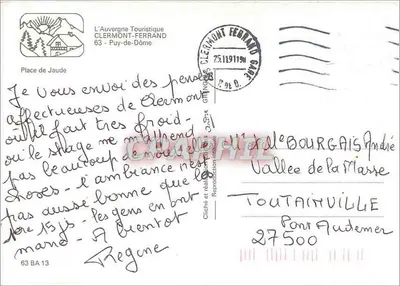 L'Auvergne Touristique
CLERMONT-FERRAND
63 - Puy-de-Dôme
Place de Jaude
CLERMONT FERRAND GARE
25.11.91
Je vous envoi des pensées
affectueuses de Clermont
où il fait très froid -
où le stage ne m'apprend
pas beaucoup de nouvelles
choses - l'ambiance n'est
pas aussi bonne que les
1er 15 js - les gens en ont
marre - A bientôt
Regine
63 BA 13
CPARAMA
Mr et Me BOURGAIS André
Vallée de la Masse
TOUTAINVILLE
Pont Audemer
27500